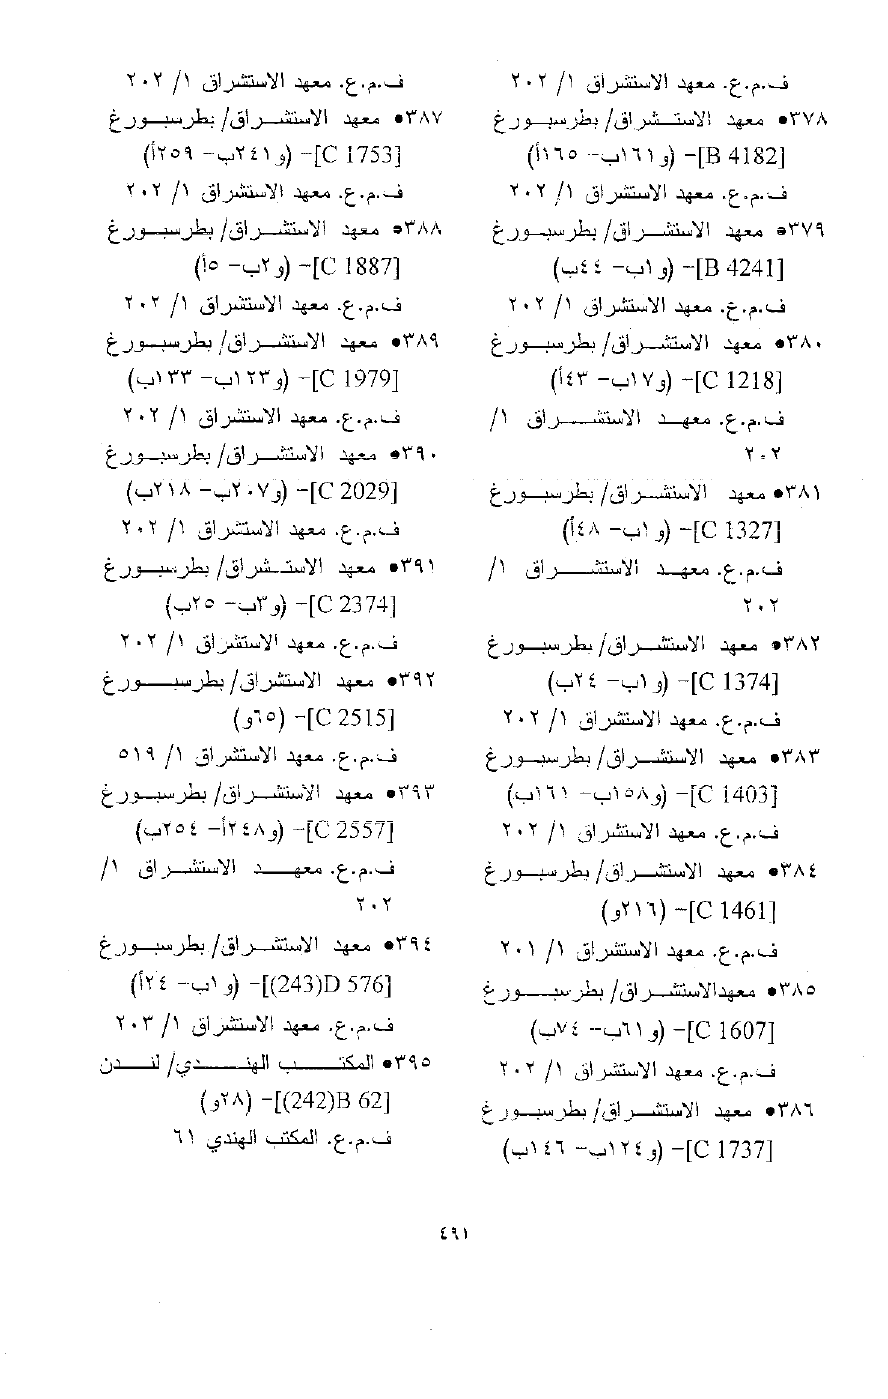 ف.م.ع. معهد الاستشراق ١/ ٢٠٢
٣٧٨• معهد الاستشراق/ بطرسبورغ
[B 4182]- (و١٦١ب- ١٦٥أ)
ف.م.ع. معهد الاستشراق ١/ ٢٠٢
٣٧٩• معهد الاستشراق/ بطرسبورغ
[B 4241]- (و١ب- ٤٤ب)
ف.م.ع. معهد الاستشراق ١/ ٢٠٢
٣٨٠• معهد الاستشراق/ بطرسبورغ
[C 1218]- (و١٧ب- ٤٣أ)
ف.م.ع. معهد الاستشراق ١/
٢٠٢
٣٨١• معهد الاستشراق/ بطرسبورغ
[C 1327]- (و١ب- ٤٨أ)
ف.م.ع. معهد الاستشراق ١/
٢٠٢
٣٨٢• معهد الاستشراق/ بطرسبورغ
[C 1374]- (و١ب- ٢٤ب)
ف.م.ع. معهد الاستشراق ١/ ٢٠٢
٣٨٣• معهد الاستشراق/ بطرسبورغ
[C 1403]- (و١٥٨ب- ١٦١ب)
ف.م.ع. معهد الاستشراق ١/ ٢٠٢
٣٨٤• معهد الاستشراق/ بطرسبورغ
[C 1461]- (٢١٦و)
ف.م.ع. معهد الاستشراق ١/ ٢٠١
٣٨٥• معهدالاستشراق/ بطرسبورغ
[C 1607]- (و٦١ب- ٧٤ب)
ف.م.ع. معهد الاستشراق ١/ ٢٠٢
٣٨٦• معهد الاستشراق/ بطرسبورغ
[C 1737]- (و١٢٤ب- ١٤٦ب)
ف.م.ع. معهد الاستشراق ١/ ٢٠٢
٣٨٧• معهد الاستشراق/ بطرسبورغ
[C 1753]- (و٢٤١ب- ٢٥٩أ)
ف.م.ع. معهد الاستشراق ١/ ٢٠٢
٣٨٨• معهد الاستشراق/ بطرسبورغ
[C 1887]- (و٢ب- ٥أ)
ف.م.ع. معهد الاستشراق ١/ ٢٠٢
٣٨٩• معهد الاستشراق/ بطرسبورغ
[C 1979]- (و١٢٣ب- ١٣٣ب)
ف.م.ع. معهد الاستشراق ١/ ٢٠٢
٣٩٠• معهد الاستشراق/ بطرسبورغ
[C 2029]- (و٢٠٧ب- ٢١٨ب)
ف.م.ع. معهد الاستشراق ١/ ٢٠٢
٣٩١• معهد الاستشراق/ بطرسبورغ
[C 2374]- (و٣ب- ٢٥ب)
ف.م.ع. معهد الاستشراق ١/ ٢٠٢
٣٩٢• معهد الاستشراق/ بطرسبورغ
[C 2515]- (٦٥و)
ف.م.ع. معهد الاستشراق ١/ ٥١٩
٣٩٣• معهد الاستشراق/ بطرسبورغ
[C 2557]- (و٢٤٨أ- ٢٥٤ب)
ف.م.ع. معهد الاستشراق ١/
٢٠٢
٣٩٤• معهد الاستشراق/ بطرسبورغ
[D 576(243)]- (و١ب- ٢٤أ)
ف.م.ع. معهد الاستشراق ١/ ٢٠٣
٣٩٥• المكتب الهندي/ لندن
[B 62(242)]- (٢٨و)
ف.م.ع. المكتب الهندي ٦١
٤٩١